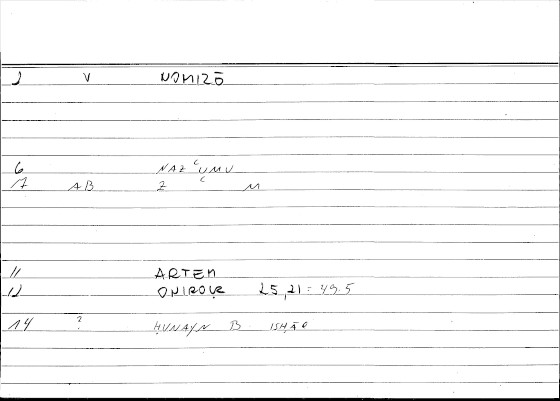 2 V NOMIZŌ
6 NAZ ʿUMU
17 AB Z ʿ M
11 ARTEM
12 ONIROKR 25,21 = 49.5
14 ? ḤUNAYN B ISḤĀQ